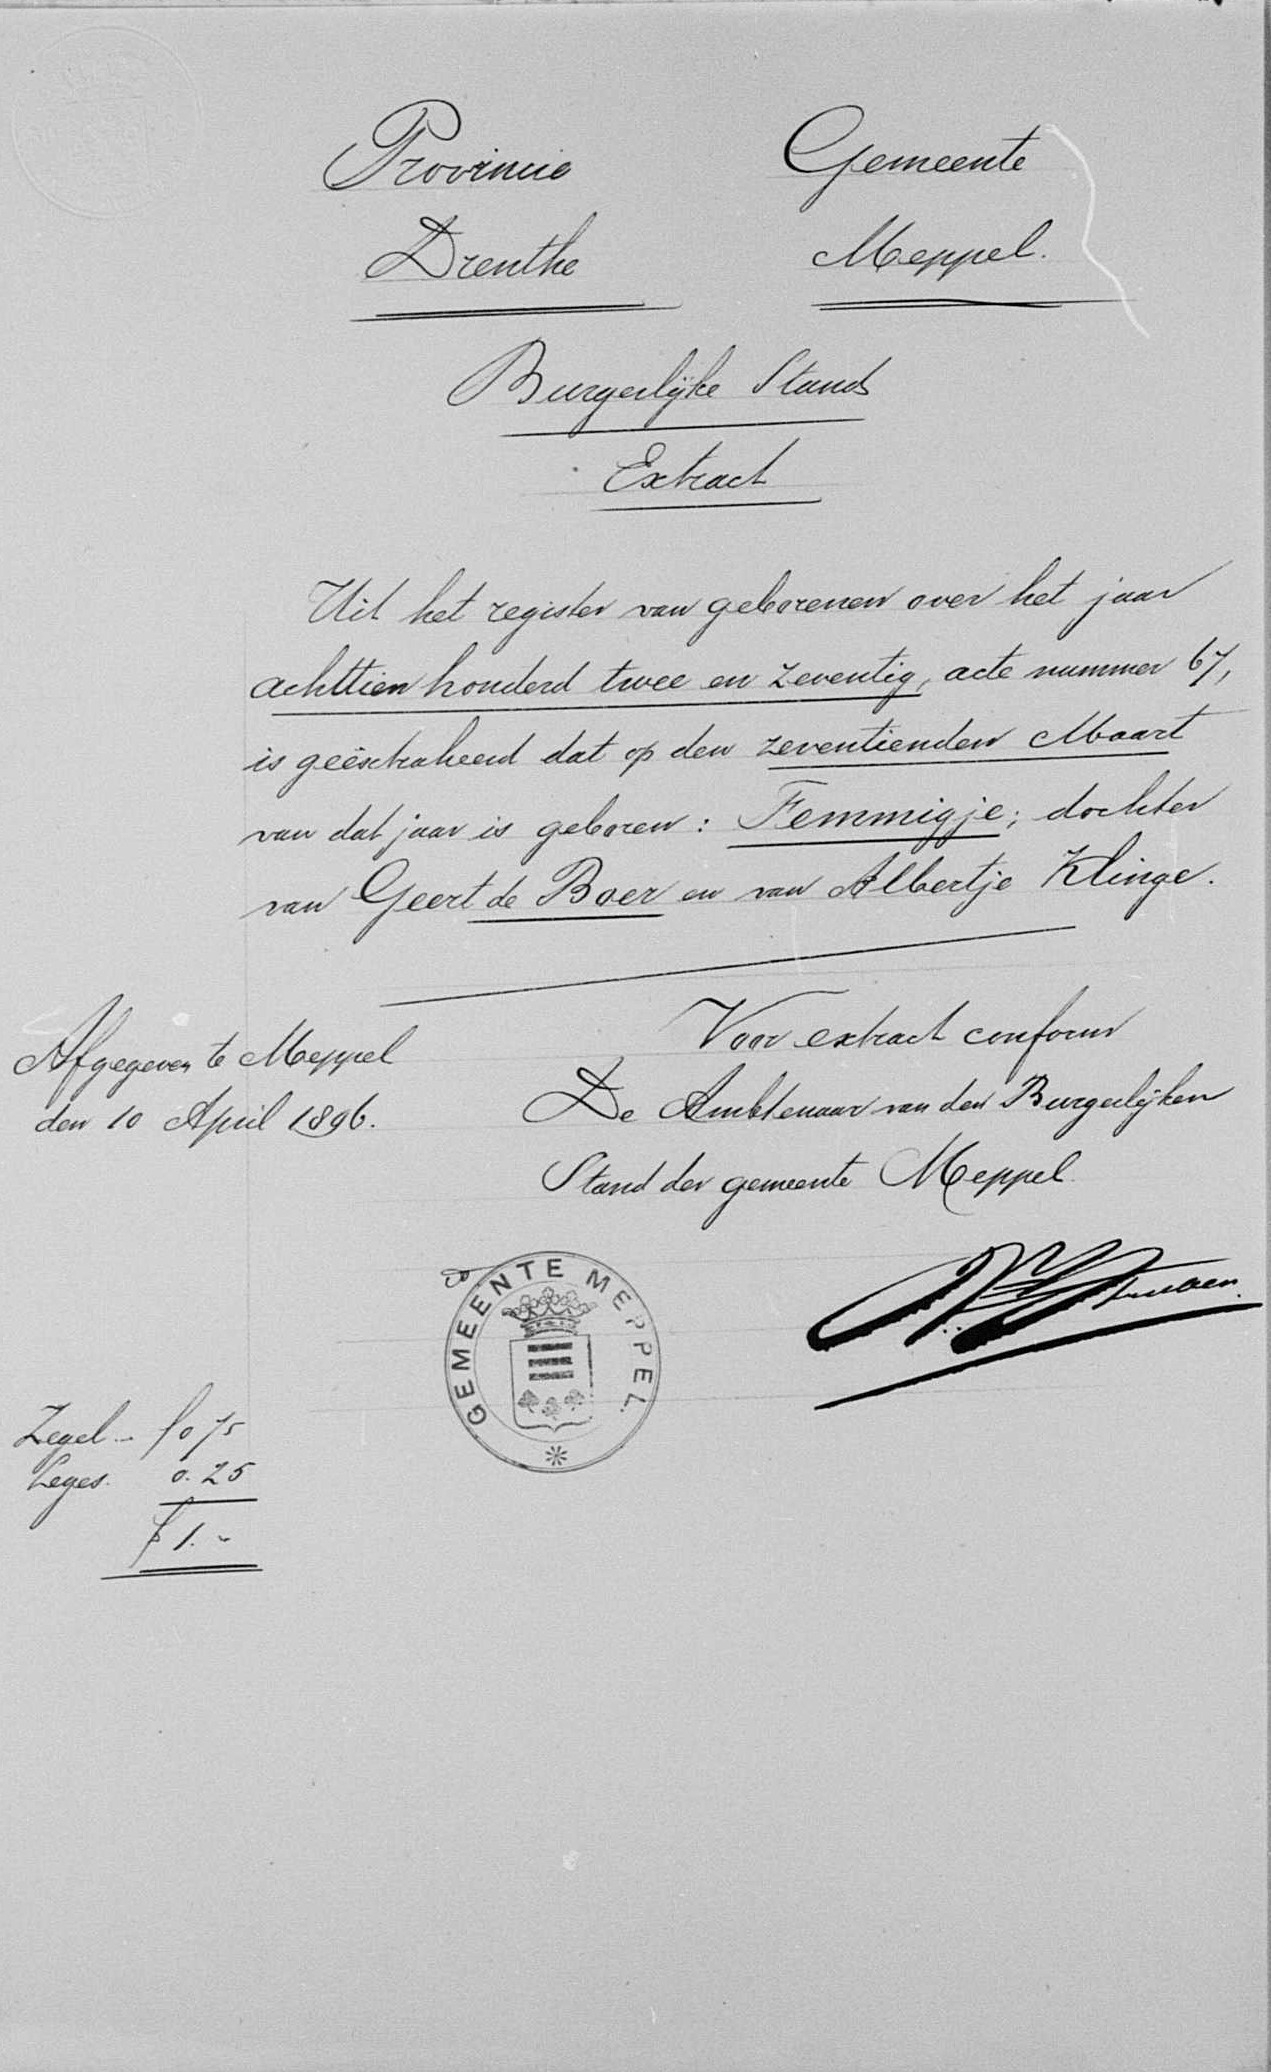 Provincie Gemeente
Drenthe Meppel.
Burgerlijke Stand
Extract
Uit het register van geborenen over het jaar
achttien honderd twee en zeventig, acte nummer 67,
is geëxtraheerd dat op den zeventienden Maart
van dat jaar is geboren : Femmigje; dochter
van Geert de Boer en van Albertje Klinge.
Afgegeven te Meppel
den 10 April 1896.
Voor extract conform
De Ambtenaar van den Burgerlijken
Stand der gemeente Meppel
GEMEENTE MEPPEL
Zegel - f 0 75
Leges. 0.25
f 1.-